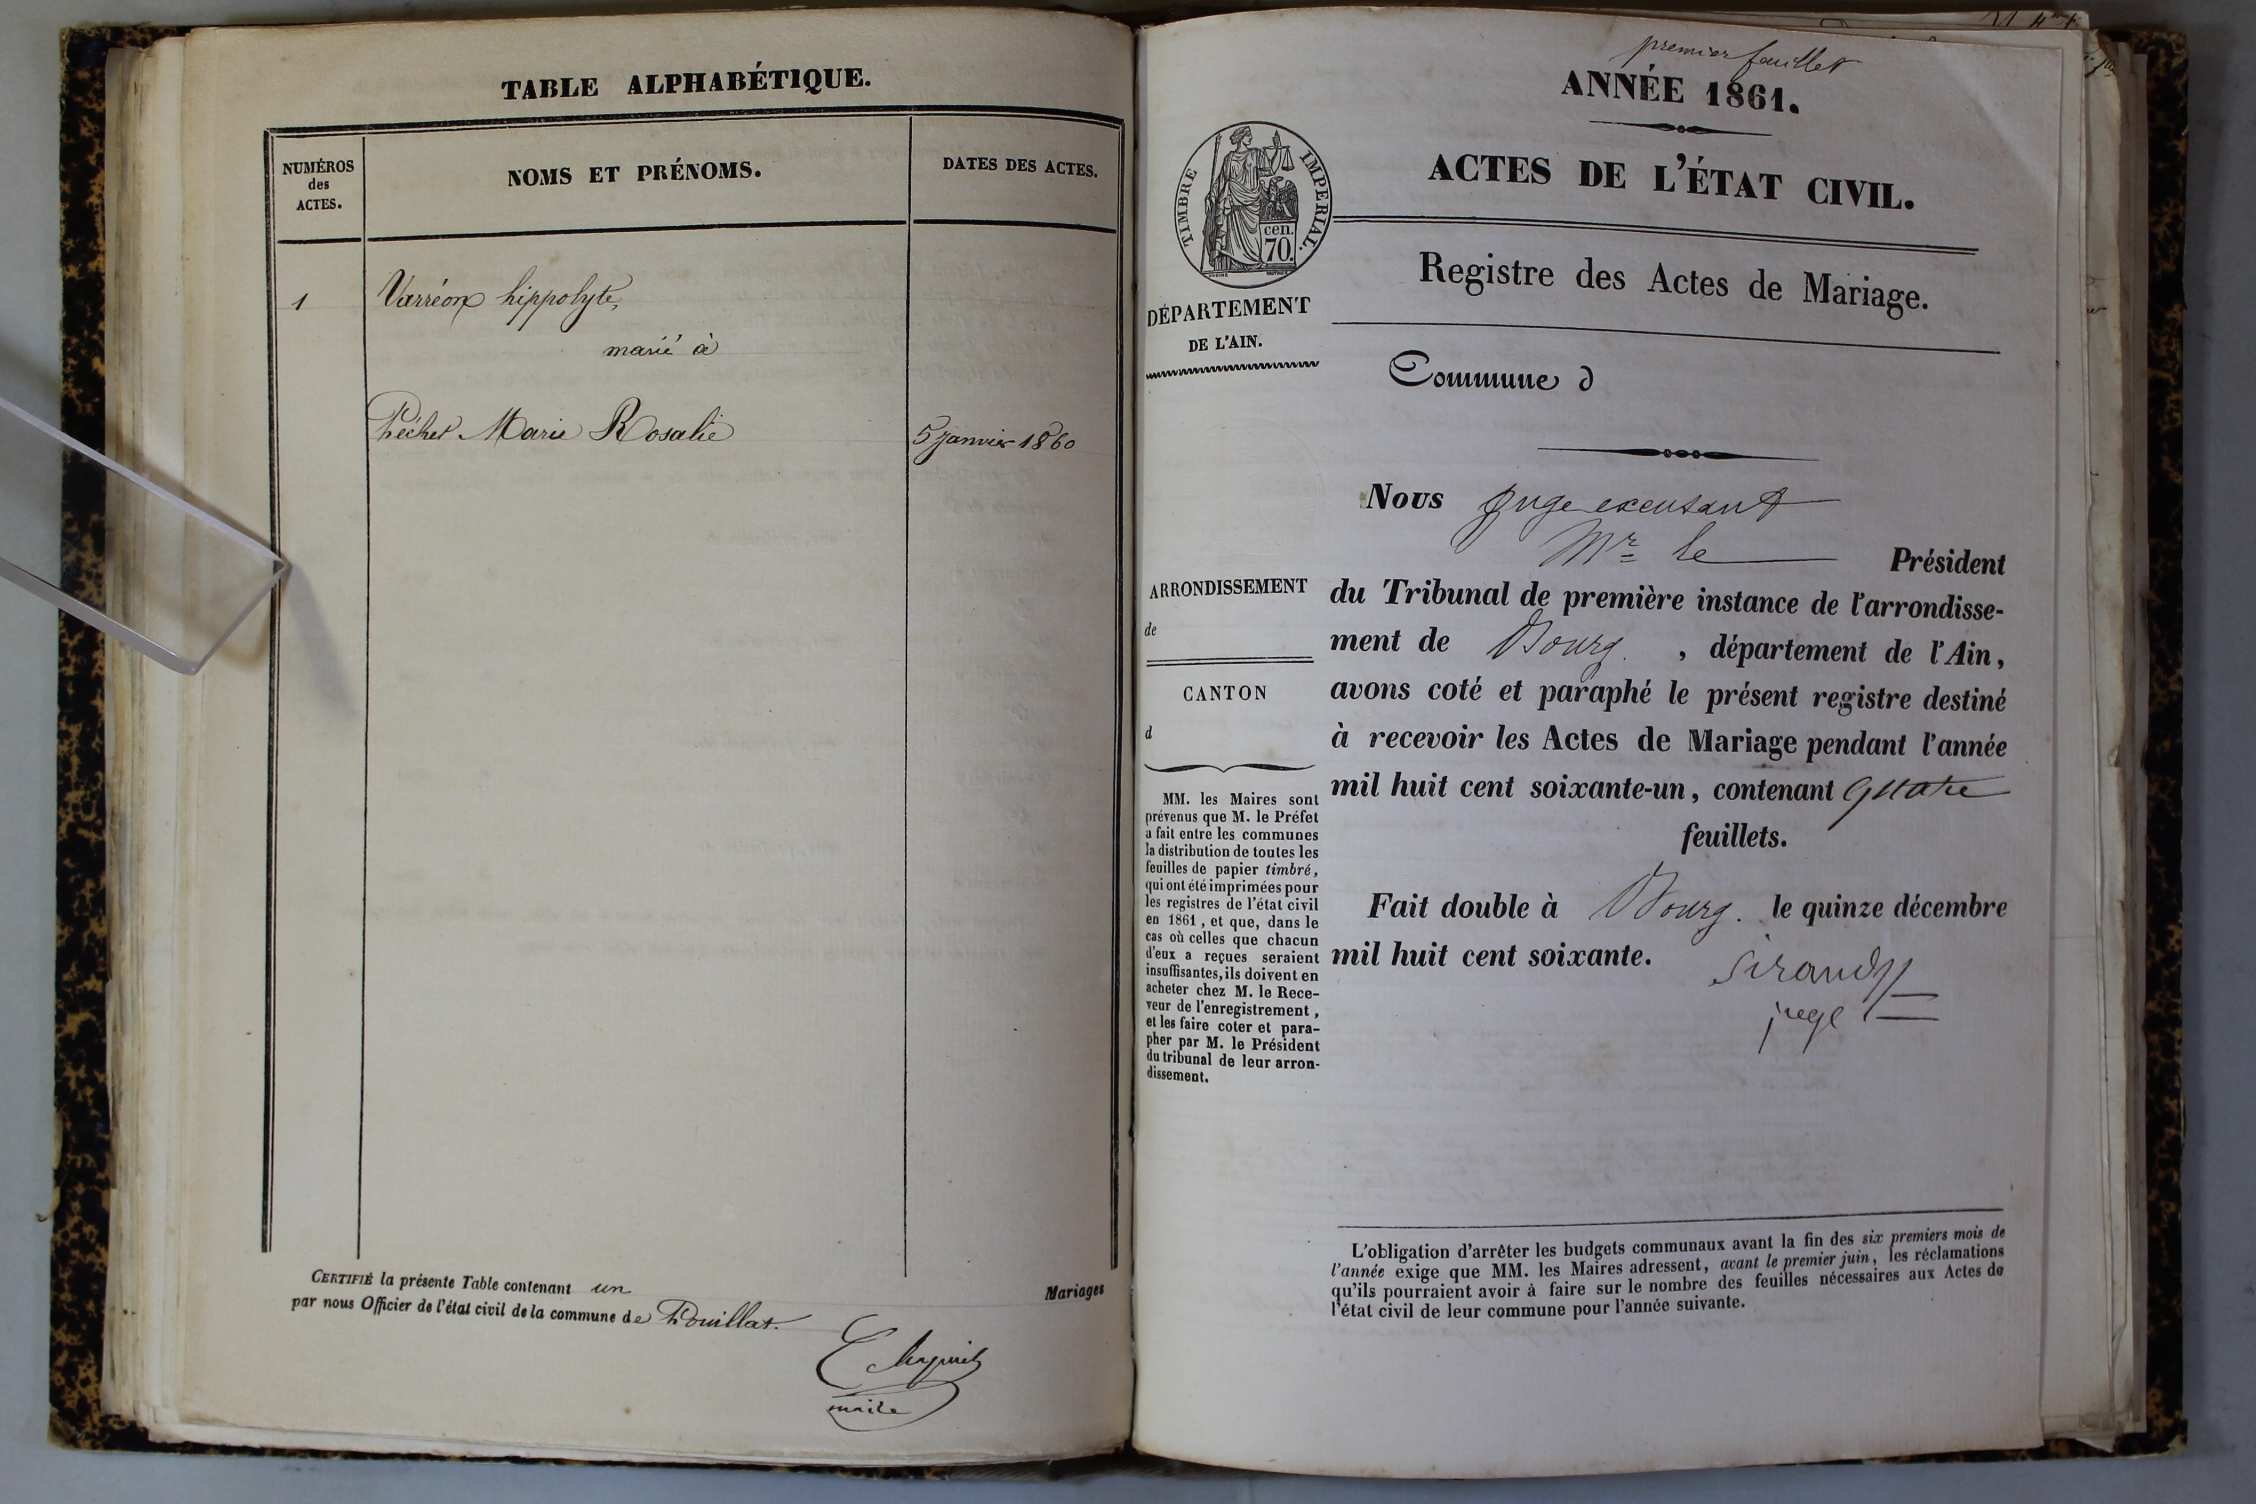 TABLE ALPHABÉTIQUE.
NUMÉROS
des
ACTES.
NOMS ET PRÉNOMS.
DATES DES ACTES.
1
Varréon hippolyte,
marié à
Péchet Marie Rosalie
5 janvier 1860
CERTIFIÉ la présente Table contenant un Mariages
par nous Officier de l'état civil de la commune de Pouillat.
maire
premier feuillet
ANNÉE 1861.
ACTES DE L'ÉTAT CIVIL.
TIMBRE IMPÉRIAL.
cen.
70.
Registre des Actes de Mariage.
DÉPARTEMENT
DE L'AIN.
Commune d
Nous juge excusant
Mr le Président
ARRONDISSEMENT
de
CANTON
d
du Tribunal de première instance de l'arrondisse-
ment de Bourg. , département de l'Ain,
avons coté et paraphé le présent registre destiné
à recevoir les Actes de Mariage pendant l'année
mil huit cent soixante-un, contenant quatre
feuillets.
Fait double à Bourg. le quinze décembre
mil huit cent soixante.
Sirand
juge
MM. les Maires sont
prévenus que M. le Préfet
a fait entre les communes
la distribution de toutes les
feuilles de papier timbré,
qui ont été imprimées pour
les registres de l'état civil
en 1861, et que, dans le
cas où celles que chacun
d'eux a reçues seraient
insuffisantes, ils doivent en
acheter chez M. le Rece-
veur de l'enregistrement,
et les faire coter et para-
pher par M. le Président
du tribunal de leur arron-
dissement.
L'obligation d'arrêter les budgets communaux avant la fin des six premiers mois de
l'année exige que MM. les Maires adressent, avant le premier juin, les réclamations
qu'ils pourraient avoir à faire sur le nombre des feuilles nécessaires aux Actes de
l'état civil de leur commune pour l'année suivante.